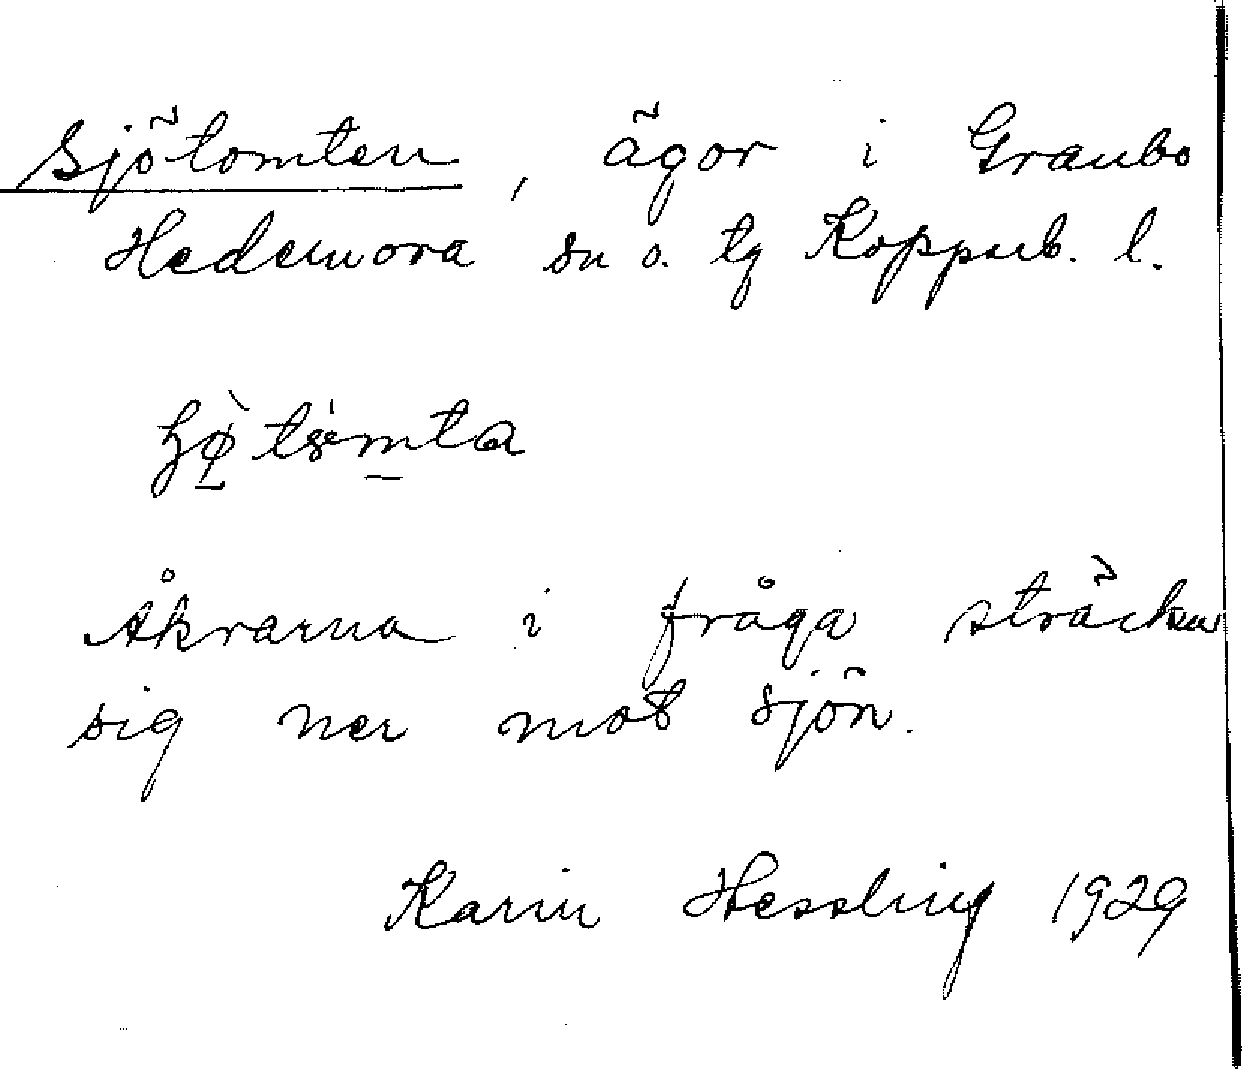 Sjötomten, ägor i Graubo
Hedemora sn o. tg Kopparb. l.
Åkrarna i fråga sträcker
sig ner mot sjön.
Karin Hessling 1929